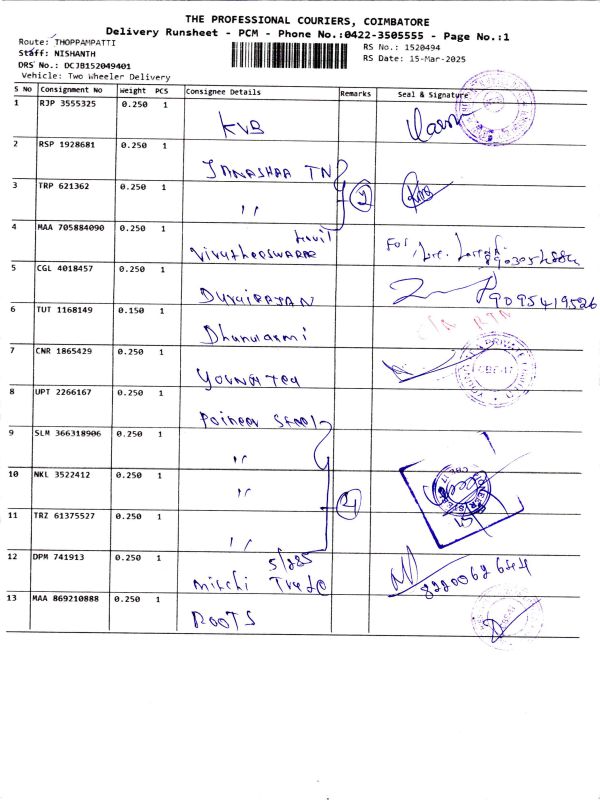 THE PROFESSIONAL COURIERS, COIMBATORE
Delivery Runsheet - PCM - Phone No.:0422-3505555 - Page No.:1
Route: THOPPAMPATTI
Staff: NISHANTH
RS No.: 1520494
DRS No.: DCJB152049401
RS Date: 15-Mar-2025
Vehicle: Two Wheeler Delivery
S No Consignment No Weight PCS Consignee Details Remarks Seal & Signature
1 RJP 3555325 0.250 1 KVB
2 RSP 1928681 0.250 1 JANASHAA TN
3 TRP 621362 0.250 1 〃 2
4 MAA 705884090 0.250 1 For
5 CGL 4018457 0.250 1 DURAIRAJAN 9095419526
6 TUT 1168149 0.150 1 Dhanulaxmi RTN
7 CNR 1865429 0.250 1 Young Tea
8 UPT 2266167 0.250 1 Poineer Steel
9 SLM 366318906 0.250 1 〃
10 NKL 3522412 0.250 1 〃 4
11 TRZ 61375527 0.250 1 〃
12 DPM 741913 0.250 1 5/285 Mirchi Trade 8220062644
13 MAA 869210888 0.250 1 ROOTS